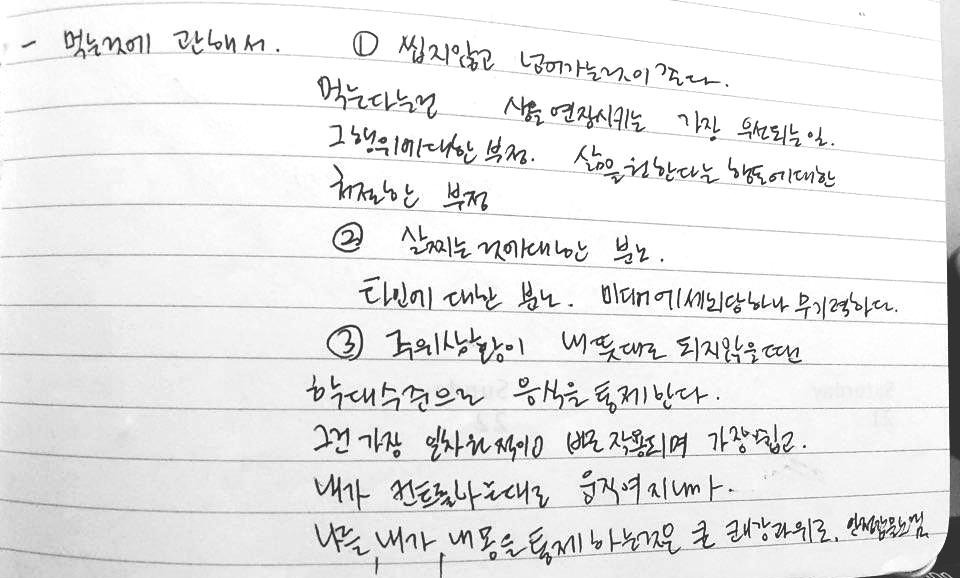 - 먹는것에 관해서. ① 씹지않고 넘어가는것이 좋다.
먹는다는건 삶을 연장시키는 가장 우선되는일.
그행위에대한 부정. 삶을원한다는 행동에대한
처절한 부정
② 살찌는것에대한 분노.
타인에 대한 분노. 미대에세뇌당하나 무기력하다.
③ 주위상황이 내뜻대로 되지않을땐
학대수준으로 음식을 통제한다.
그건 가장 일차원적이고 바로작용되며 가장쉽고.
내가 컨트롤하는대로 움직여지니까.
나를, 내가, 내몸을 통제하는것은 큰 쾌감과위로, 안정감을느낌